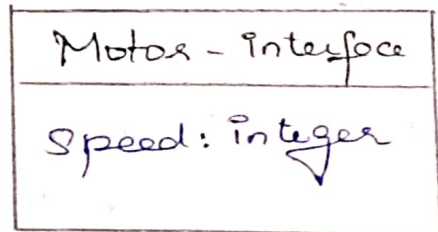 Motor - interface
Speed: integer